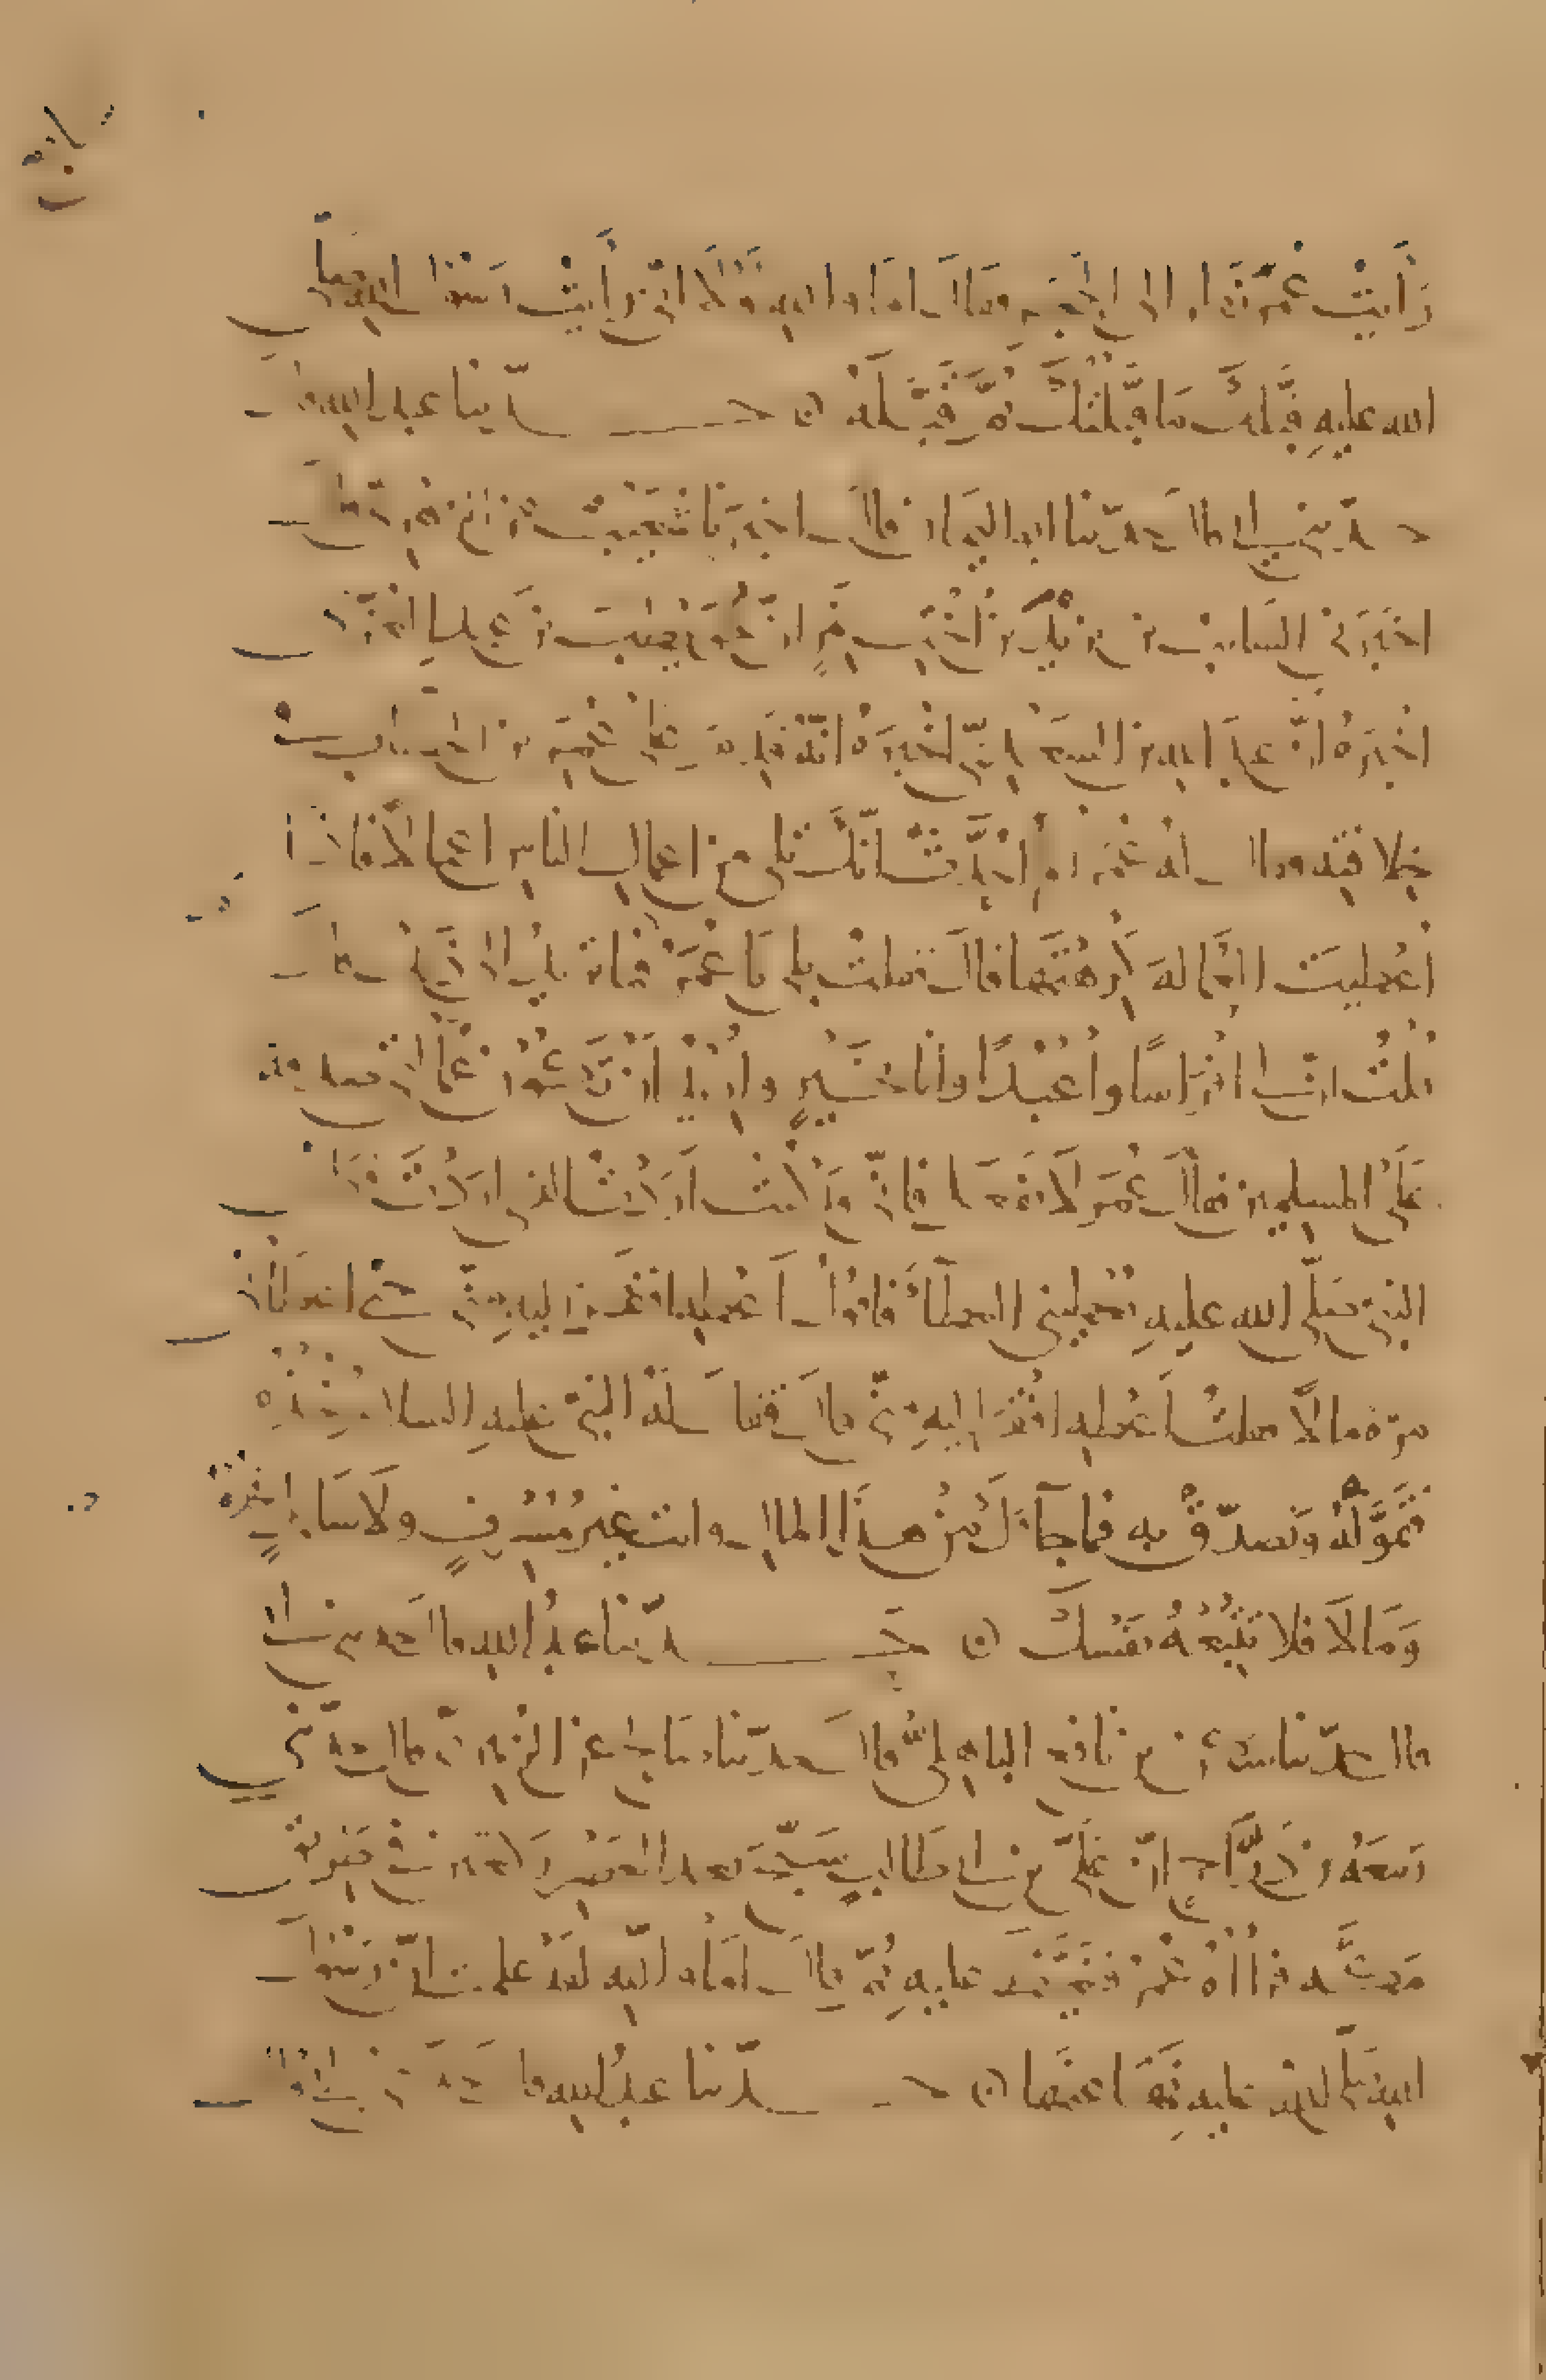 رَأَيْتُ عُمَرَ نَظَرَ الى الحجر فقال اما والله لَوْلَا انّي رأيتُ رسول الله صلى
الله عليهِ قبَّلكَ مَا قبَّلْتُكَ ثُمَّ قَبَّلَهُ حـــدّثنا عبد الله قال
حدّثني ابي قال حدّثنا ابو اليمان قال اخبرنا شُعَيْبٌ عن الزهري قال
اخبَرَني السايب بن يزيد بن أُخْتِ نَمِرٍ انّ حُوَيْطِبَ بن عبد العُزّى
اخبَرَهُ انّ عبد الله بن السعديّ اخبَرَهُ انّهُ قَدِمَ على عُمَرَ بن الخطاب في
خلافته فقال له عُمَر أَلَمْ أُحَدَّثْ انّكَ تلي من اعمالِ الناسِ اعمالًا فاذا
أُعطيتَ العُمالةَ كَرِهْتَها قال فقلتُ بلى فقال عُمَرُ فما تريدُ الى ذلِكَ قال
قُلْتُ انّ لي افراسًا واَعْبُدًا وانا بخَيْرٍ واُريدُ اَنْ تَكُونَ عُمالتي صدقةً
عَلَى المسلمين فقال عُمَر لَا تَفْعَل فانّي قَدْ كُنْتُ اَرَدْتُ الذي اردْتَ فكان
النبيّ صَلّى الله عليهِ يُعطيني العطآءَ فاقولُ اَعْطِهِ افقَرَ اليهِ منّي حتّى اعطاني
مرّةً مالًا فقلتُ اَعْطِهِ افْقَرَ اليهِ منّي قال فقال لَهُ النبيّ عليهِ السلام خُذْهُ
فتَمَوَّلْهُ وتصدّقْ بهِ فما جآءَكَ مِنْ هذَا المالِ وانت غيرُ مُشْرِفٍ ولَا سَايِلٍ فخُذْهُ
وَمَا لَا فلا تُتْبِعْهُ نَفْسَكَ حَـــدّثنا عبدُ الله قال حدثني ابي
قال حدّثنا سَكَنُ بن نافع الباهِليُّ قال حدّثنا صَالح عن الزهريّ قال حدّثني
رَبيعَةُ بن دَرَّاجٍ انّ عَليَّ بن ابي طَالبٍ سَبَّحَ بعد العصْرِ ركعتين في طريق
مكّة فرآهُ عُمَرُ فتَغَيَّظَ عليهِ ثُمّ قالَ اَمَا واللهِ لقَدْ علمتَ انّ رسُولَ
الله صَلّى الله عليه نَهَى عنها حـــدّثنا عبدُ الله قال حدثني ابي قال